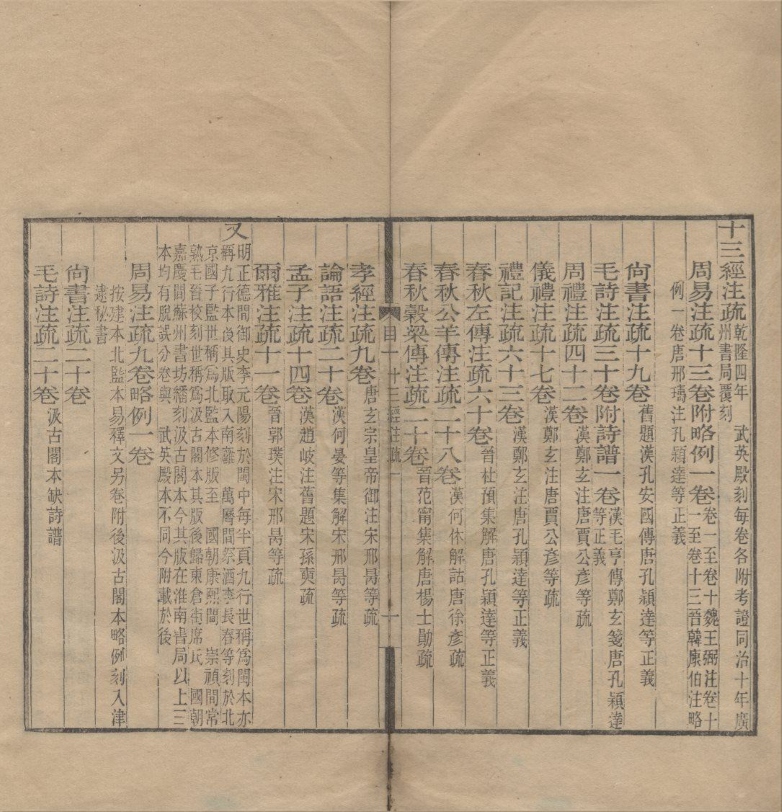 十三經注疏乾隆四年　武英殿刻每卷各附考證同治十年廣
州書局覆刻
周易注疏十三卷附略例一卷卷一至卷十魏王弼注卷十
一至卷十三晉韓康伯注略
例一卷唐邢璹注孔穎達等正義
尚書注疏十九卷舊題漢孔安國傳唐孔穎達等正義
毛詩注疏三十卷附詩譜一卷漢毛亨傳鄭玄箋唐孔穎達
等正義
周禮注疏四十二卷漢鄭玄注唐賈公彥等疏
儀禮注疏十七卷漢鄭玄注唐賈公彥等疏
禮記注疏六十三卷漢鄭玄注唐孔穎達等正義
春秋左傳注疏六十卷晉杜預集解唐孔穎達等正義
春秋公羊傳注疏二十八卷漢何休解詁唐徐彥疏
春秋穀梁傳注疏二十卷晉范甯集解唐楊士勛疏
目一　十三經注疏　一
孝經注疏九卷唐玄宗皇帝御注宋邢昺等疏
論語注疏二十卷漢何晏等集解宋邢昺等疏
孟子注疏十四卷漢趙岐注舊題宋孫奭疏
爾雅注疏十一卷晉郭璞注宋邢昺等疏
又明正德間御史李元陽刻於閩中每半頁九行世稱為閩本亦
稱九行本後其版取入南雍　萬曆間祭酒李長春等刻於北
京國子監世稱為北監本修版至　國朝康熙間　崇禎間常
熟毛晉校刻世稱為汲古閣本其版後歸東倉街席氏　國朝
嘉慶間蘇州書坊繙刻汲古閣本今其版在淮南書局以上三
本均有脫誤分卷與　武英殿本不同今附載於後
周易注疏九卷略例一卷
按建本北監本易釋文另卷附後汲古閣本略例刻入津
逮秘書
尚書注疏二十卷
毛詩注疏二十卷汲古閣本缺詩譜